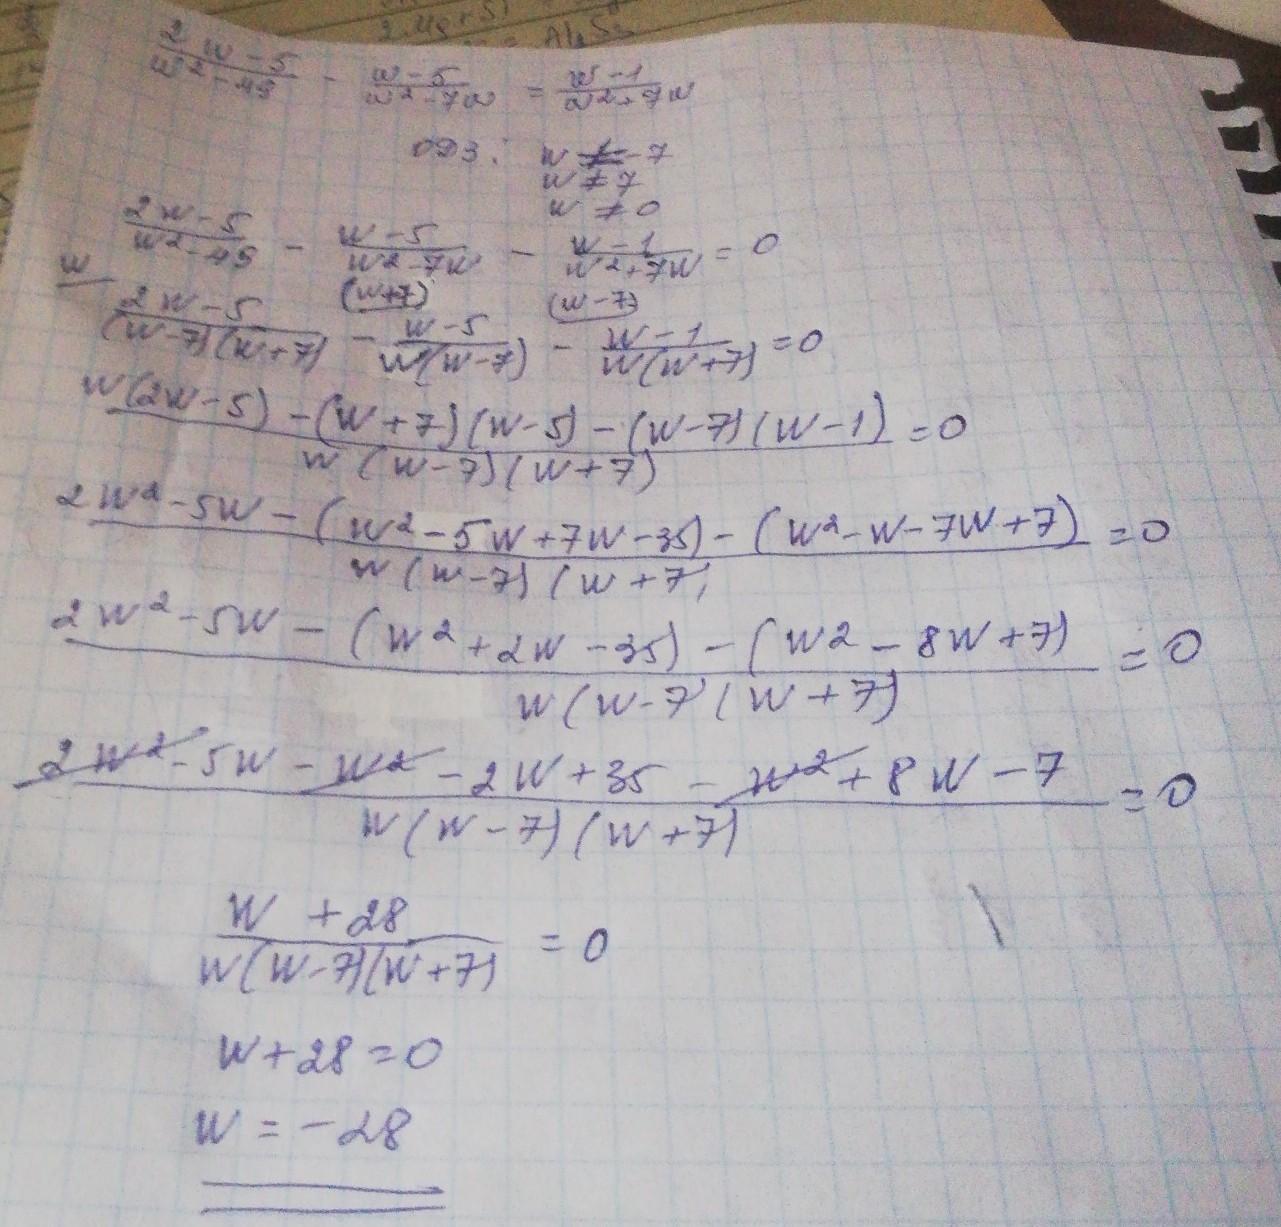 2w-5/w²-49 - w-5/w²-7w = w-1/w²+7w
ОДЗ: w ≠ -7
w ≠ 7
w ≠ 0
2w-5/w²-49 - w-5/w²-7w - w-1/w²+7w = 0
w (w+7) (w-7)
2w-5/(w-7)(w+7) - w-5/w(w-7) - w-1/w(w+7) = 0
w(2w-5) - (w+7)(w-5) - (w-7)(w-1)/w(w-7)(w+7) = 0
2w²-5w - (w²-5w+7w-35) - (w²-w-7w+7)/w(w-7)(w+7) = 0
2w²-5w - (w²+2w-35) - (w²-8w+7)/w(w-7)(w+7) = 0
2w²-5w - w² - 2w + 35 - w² + 8w - 7/w(w-7)(w+7) = 0
w + 28/w(w-7)(w+7) = 0
w + 28 = 0
w = -28